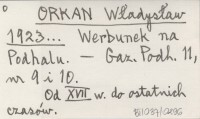 ORKAN Władysław
1923... Werbunek na
Podhalu. — Gaz. Podh. 11,
nr 9 i 10.
Od XVII w. do ostatnich
czasów.